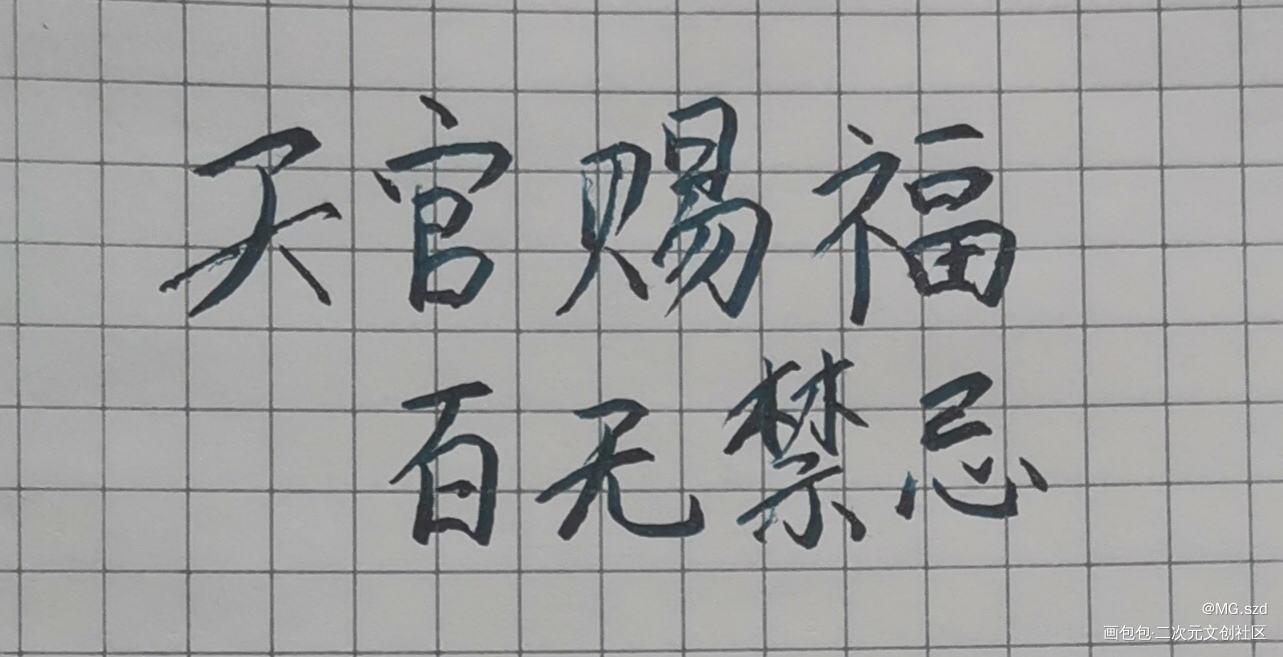 天官赐福
百无禁忌
@MG.szd
画包包·二次元文创社区